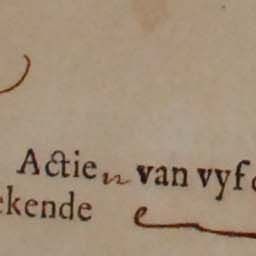 Actien van vyf
ekende